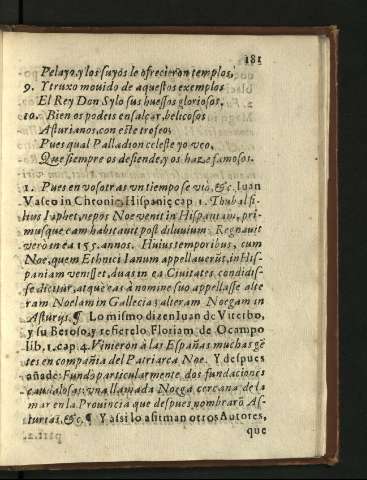 181
Pelayo, y los suyos le ofrecieron templos,
9. Y truxo movido de aquestos exemplos
El Rey Don Sylo sus huessos gloriosos.
10. Bien os podeis ensalçar, belicosos
Asturianos, con este trofeo,
Pues qual Palladion celeste yo veo,
Que siempre os defiende, y os haze famosos.
1. Pues en vosotras un tiempo se vió, &c. Iuan
Vaseo in Chronic. Hispanię cap. 1. Thubal fi-
lius Iaphet, nepos Noe venit in Hispaniam, pri-
musque eam habitavit post diluvium: Regnavit
vero in ea 155. annos. Huius temporibus, cum
Noe, quem Ethnici Ianum appellaverūt, in His-
paniam venisset, duas in ea Civitates condidis-
se dicitur, atque eas à nomine suo appellasse alte
ram Noelam in Gallecia; alteram Noegam in
Asturys. ¶ Lo mismo dizen Iuan de Viterbo,
y su Beroso, y refierelo Floriam de Ocampo
lib. 1. cap. 4. Vinieron à las Españas muchas gē
tes en compañia del Patriarca Noe. Y despues
añade: Fundo particularmente dos fundaciones
caudalosas; una llamada Noega cercana de la
mar en la Provincia que despues nombraron As-
turias, &c. ¶ Y assi lo afirman otros Autores,
que